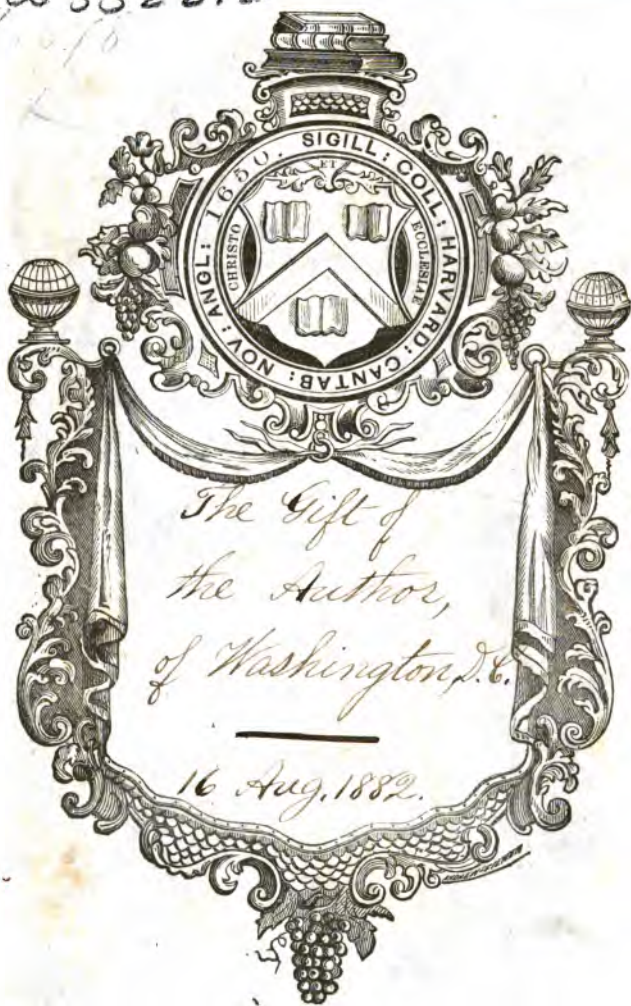 SIGILL: COLL: HARVARD: CANTAB: NOV: ANGL: 1650.
CHRISTO
ET
ECCLESIAE
The Gift of
the Author,
of Washington, D.C.
16 Aug. 1882.